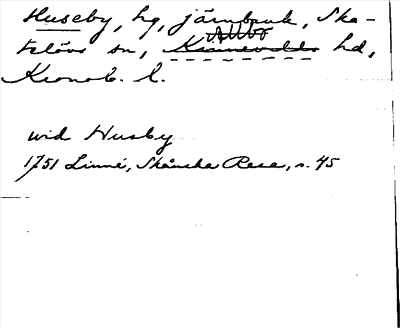 Huseby, hg, järnbruk, Ska-
Allbo
telövs sn, Kinnevalds hd,
Kronob. l.
wid Husby
1751 Linné, Skånska Resa, s. 45